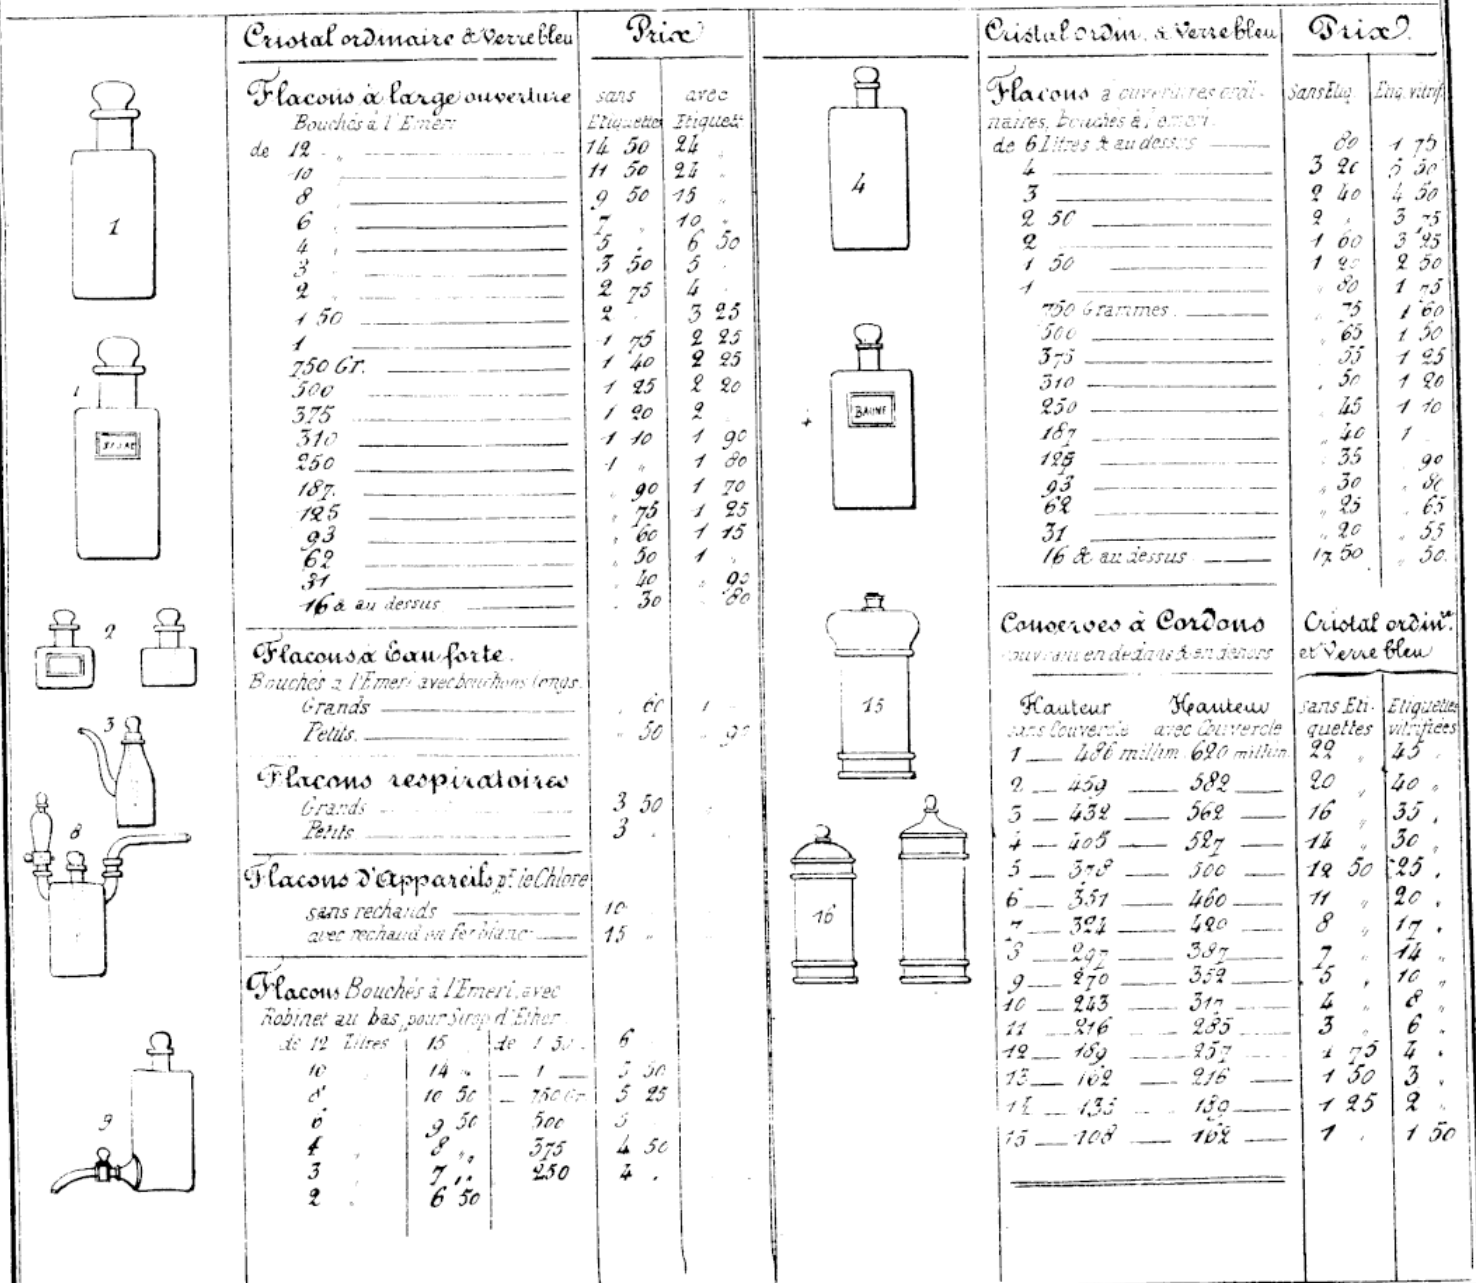 Cristal ordinaire & Verre bleu Prix
Flacons à large ouverture sans avec
Bouchés à l'Emeri Etiquettes Etiquett
de 12 „ 14 50 24 „
10 11 50 24 „
8 „ 9 50 15 „
6 „ 7 „ 10 „
4 „ 5 „ 6 50
3 „ 3 50 5 „
2 „ 2 75 4 „
1 50 2 „ 3 25
1 1 75 2 25
750 Gr. 1 40 2 25
500 1 25 2 20
375 1 20 2 „
310 1 10 1 90
250 1 „ 1 80
187. „ 90 1 70
125 „ 75 1 25
93 „ 60 1 15
62 „ 50 1 „
31 „ 40 „ 90
16 & au dessus „ 30 „ 80
Flacons à Eau forte.
Bouchés à l'Emeri avec bouchons longs.
Grands „ 60 1 „
Petits. „ 50 „ 90
Flacons respiratoires
Grands 3 50 „
Petits 3 „
Flacons d'Appareils pr. le Chlore
sans rechauds 10
avec rechaud en Fer blanc 15 „
Flacons Bouchés à l'Emeri, avec
Robinet au bas, pour Sirop d'Ether
de 12 Litres 15 de 1 50 6
10 14 „ 1 5 50
8 10 50 750 Gr 5 25
6 9 50 500 5
4 8 „ 375 4 50
3 7 „ 250 4 „
2 6 50
1
1
2
3
8
9
Cristal ordin. & Verre bleu Prix.
Flacons à ouvertures ordi- Sans Etiq. Etiq. vitrif.
naires, bouchés à l'emeri.
de 6 Litres & au dessus 80 1 75
4 3 20 5 50
3 2 40 4 50
2 50 2 „ 3 75
2 1 60 3 25
1 50 1 20 2 50
1 „ 80 1 75
750 Grammes. „ 75 1 60
500 „ 65 1 50
375 „ 55 1 25
310 „ 50 1 20
250 „ 45 1 10
187 „ 40 1 „
125 „ 35 „ 90
93 „ 30 „ 80
62 „ 25 „ 65
31 „ 20 „ 55
16 & au dessus 17 50 „ 50.
4
BAUME
Conserves à Cordons Cristal ordinre.
couvrant en dedans & en dehors et Verre bleu
Hauteur Hauteur sans Eti- Etiquettes
sans Couvercle avec Couvercle quettes vitrifiées
1 486 millim. 620 millim. 22 „ 45 „
2 459 582 20 „ 40 „
3 432 562 16 „ 35 „
4 405 527 14 „ 30 „
5 378 500 12 50 25 „
6 351 460 11 „ 20 „
7 324 420 8 „ 17 „
8 297 387 7 „ 14 „
9 270 352 5 „ 10 „
10 243 317 4 „ 8 „
11 216 285 3 „ 6 „
12 189 257 1 75 4 „
13 162 216 1 50 3 „
14 135 189 1 25 2 „
15 108 162 1 „ 1 50
15
16